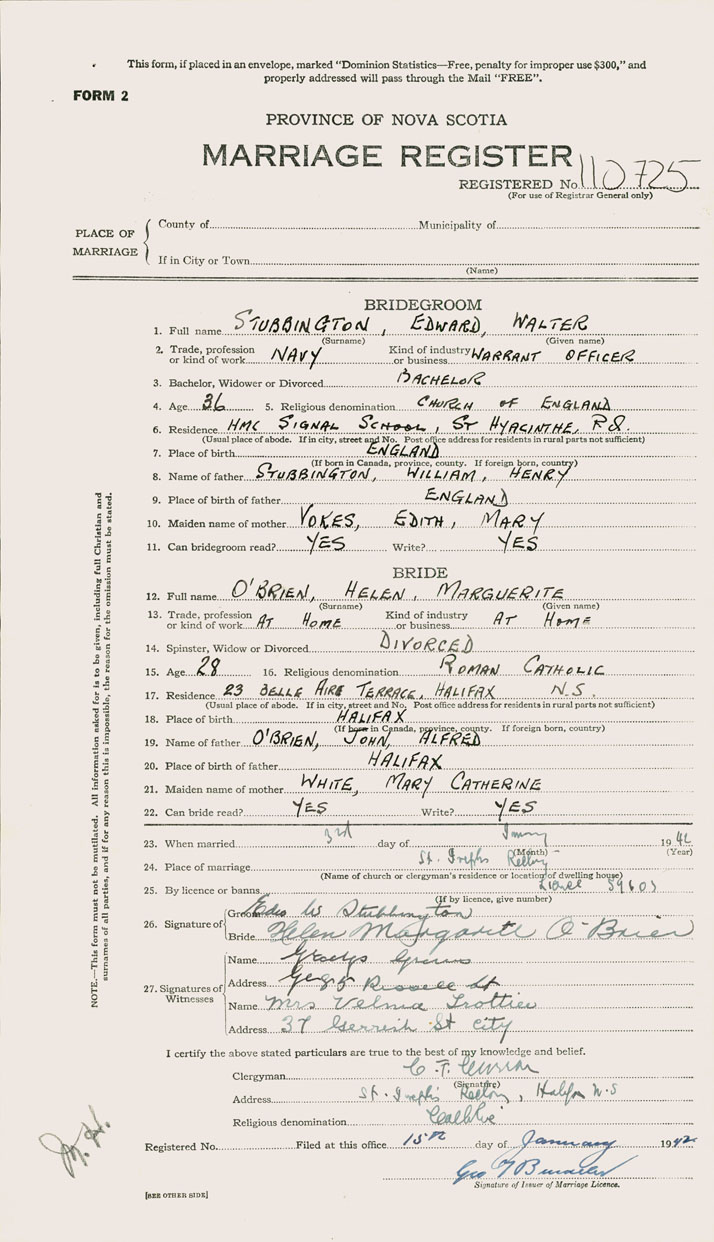 This form, if placed in an envelope, marked "Dominion Statistics—Free, penalty for improper use $300," and
properly addressed will pass through the Mail "FREE".
FORM 2
PROVINCE OF NOVA SCOTIA
MARRIAGE REGISTER
REGISTERED No. 110725
(For use of Registrar General only)
PLACE OF MARRIAGE
County of Municipality of
If in City or Town
(Name)
BRIDEGROOM
1. Full name STUBBINGTON, EDWARD, WALTER
(Surname) (Given name)
2. Trade, profession or kind of work NAVY Kind of industry or business WARRANT OFFICER
3. Bachelor, Widower or Divorced BACHELOR
4. Age 36 5. Religious denomination CHURCH OF ENGLAND
6. Residence HMC SIGNAL SCHOOL, ST HYACINTHE, P.Q.
(Usual place of abode. If in city, street and No. Post office address for residents in rural parts not sufficient)
7. Place of birth ENGLAND
(If born in Canada, province, county. If foreign born, country)
8. Name of father STUBBINGTON, WILLIAM, HENRY
9. Place of birth of father ENGLAND
10. Maiden name of mother VOKES, EDITH, MARY
11. Can bridegroom read? YES Write? YES
BRIDE
12. Full name O'BRIEN, HELEN, MARGUERITE
(Surname) (Given name)
13. Trade, profession or kind of work AT HOME Kind of industry or business AT HOME
14. Spinster, Widow or Divorced DIVORCED
15. Age 28 16. Religious denomination ROMAN CATHOLIC
17. Residence 23 BELLE AIRE TERRACE, HALIFAX N.S.
(Usual place of abode. If in city, street and No. Post office address for residents in rural parts not sufficient)
18. Place of birth HALIFAX
(If born in Canada, province, county. If foreign born, country)
19. Name of father O'BRIEN, JOHN, ALFRED
20. Place of birth of father HALIFAX
21. Maiden name of mother WHITE, MARY CATHERINE
22. Can bride read? YES Write? YES
23. When married 3rd day of 19
(Month) (Year)
24. Place of marriage St. Josephs Rectory
(Name of church or clergyman's residence or location of dwelling house)
25. By licence or banns 59603
(If by licence, give number)
26. Signature of
Groom Edw W Stubbington
Bride Helen Margarite O'Brien
27. Signatures of Witnesses
Name Gladys
Address Russell St
Name Mrs Velma Trottier
Address 37 Gerrish St City
I certify the above stated particulars are true to the best of my knowledge and belief.
Clergyman C. F. Curran
(Signature)
Address St. Josephs Rectory, Halifax N.S
Religious denomination Catholic
Registered No. Filed at this office 15th day of January 1942
Geo
Signature of Issuer of Marriage Licence.
[SEE OTHER SIDE]
NOTE.—This form must not be mutilated. All information asked for is to be given, including full Christian and
surnames of all parties, and if for any reason this is impossible, the reason for the omission must be stated.